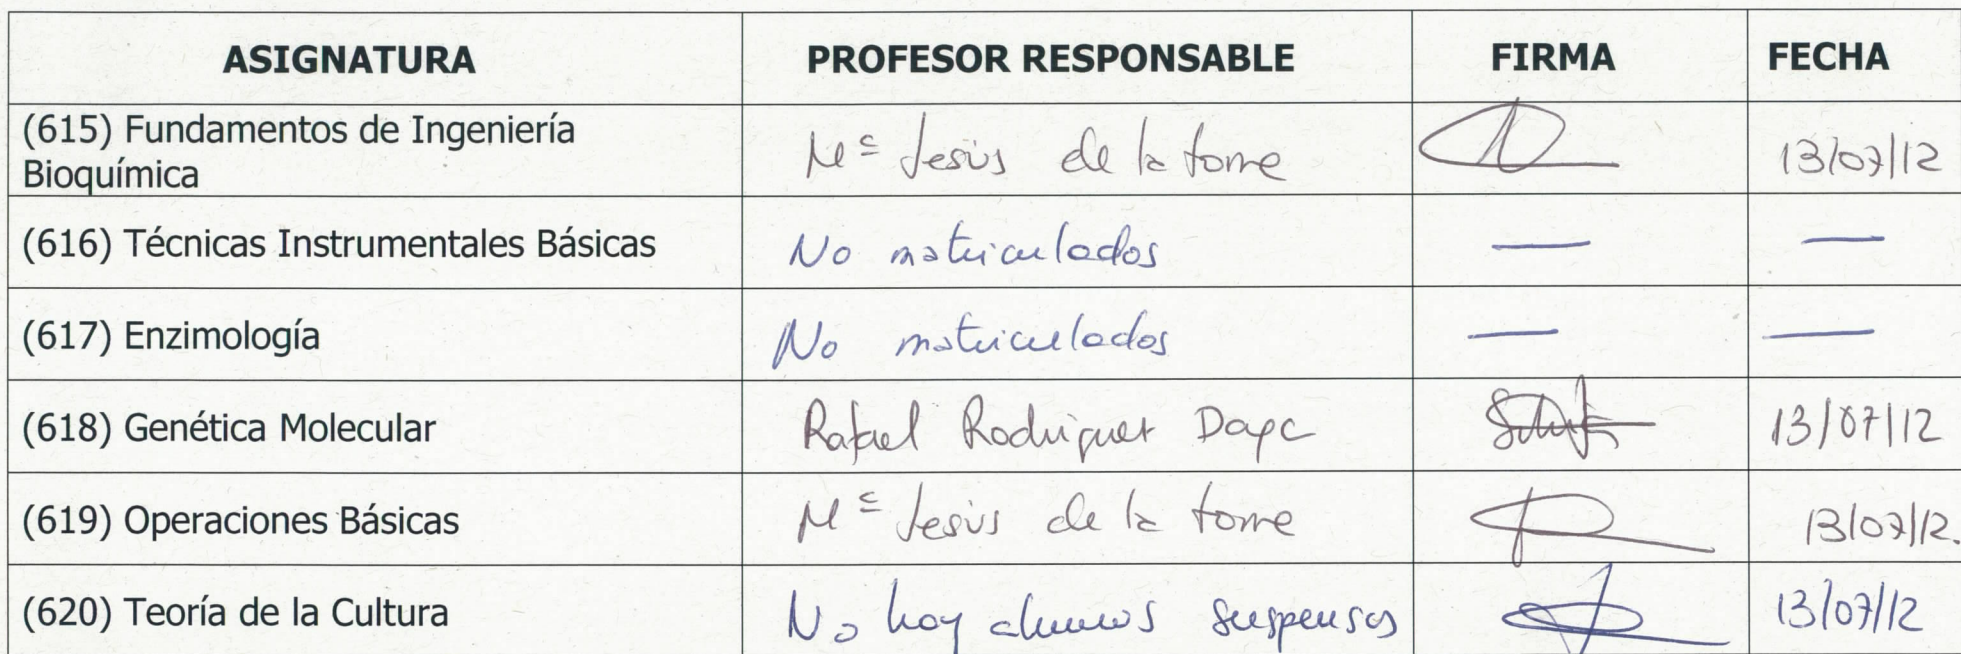 ASIGNATURA PROFESOR RESPONSABLE FIRMA FECHA
(615) Fundamentos de Ingeniería
Bioquímica
Mª Jesús de la torre 13/07/12
(616) Técnicas Instrumentales Básicas No matriculados — —
(617) Enzimología No matriculados — —
(618) Genética Molecular Rafael Rodriguez 13/07/12
(619) Operaciones Básicas Mª Jesús de la torre 13/07/12.
(620) Teoría de la Cultura No hay alumnos suspensos 13/07/12